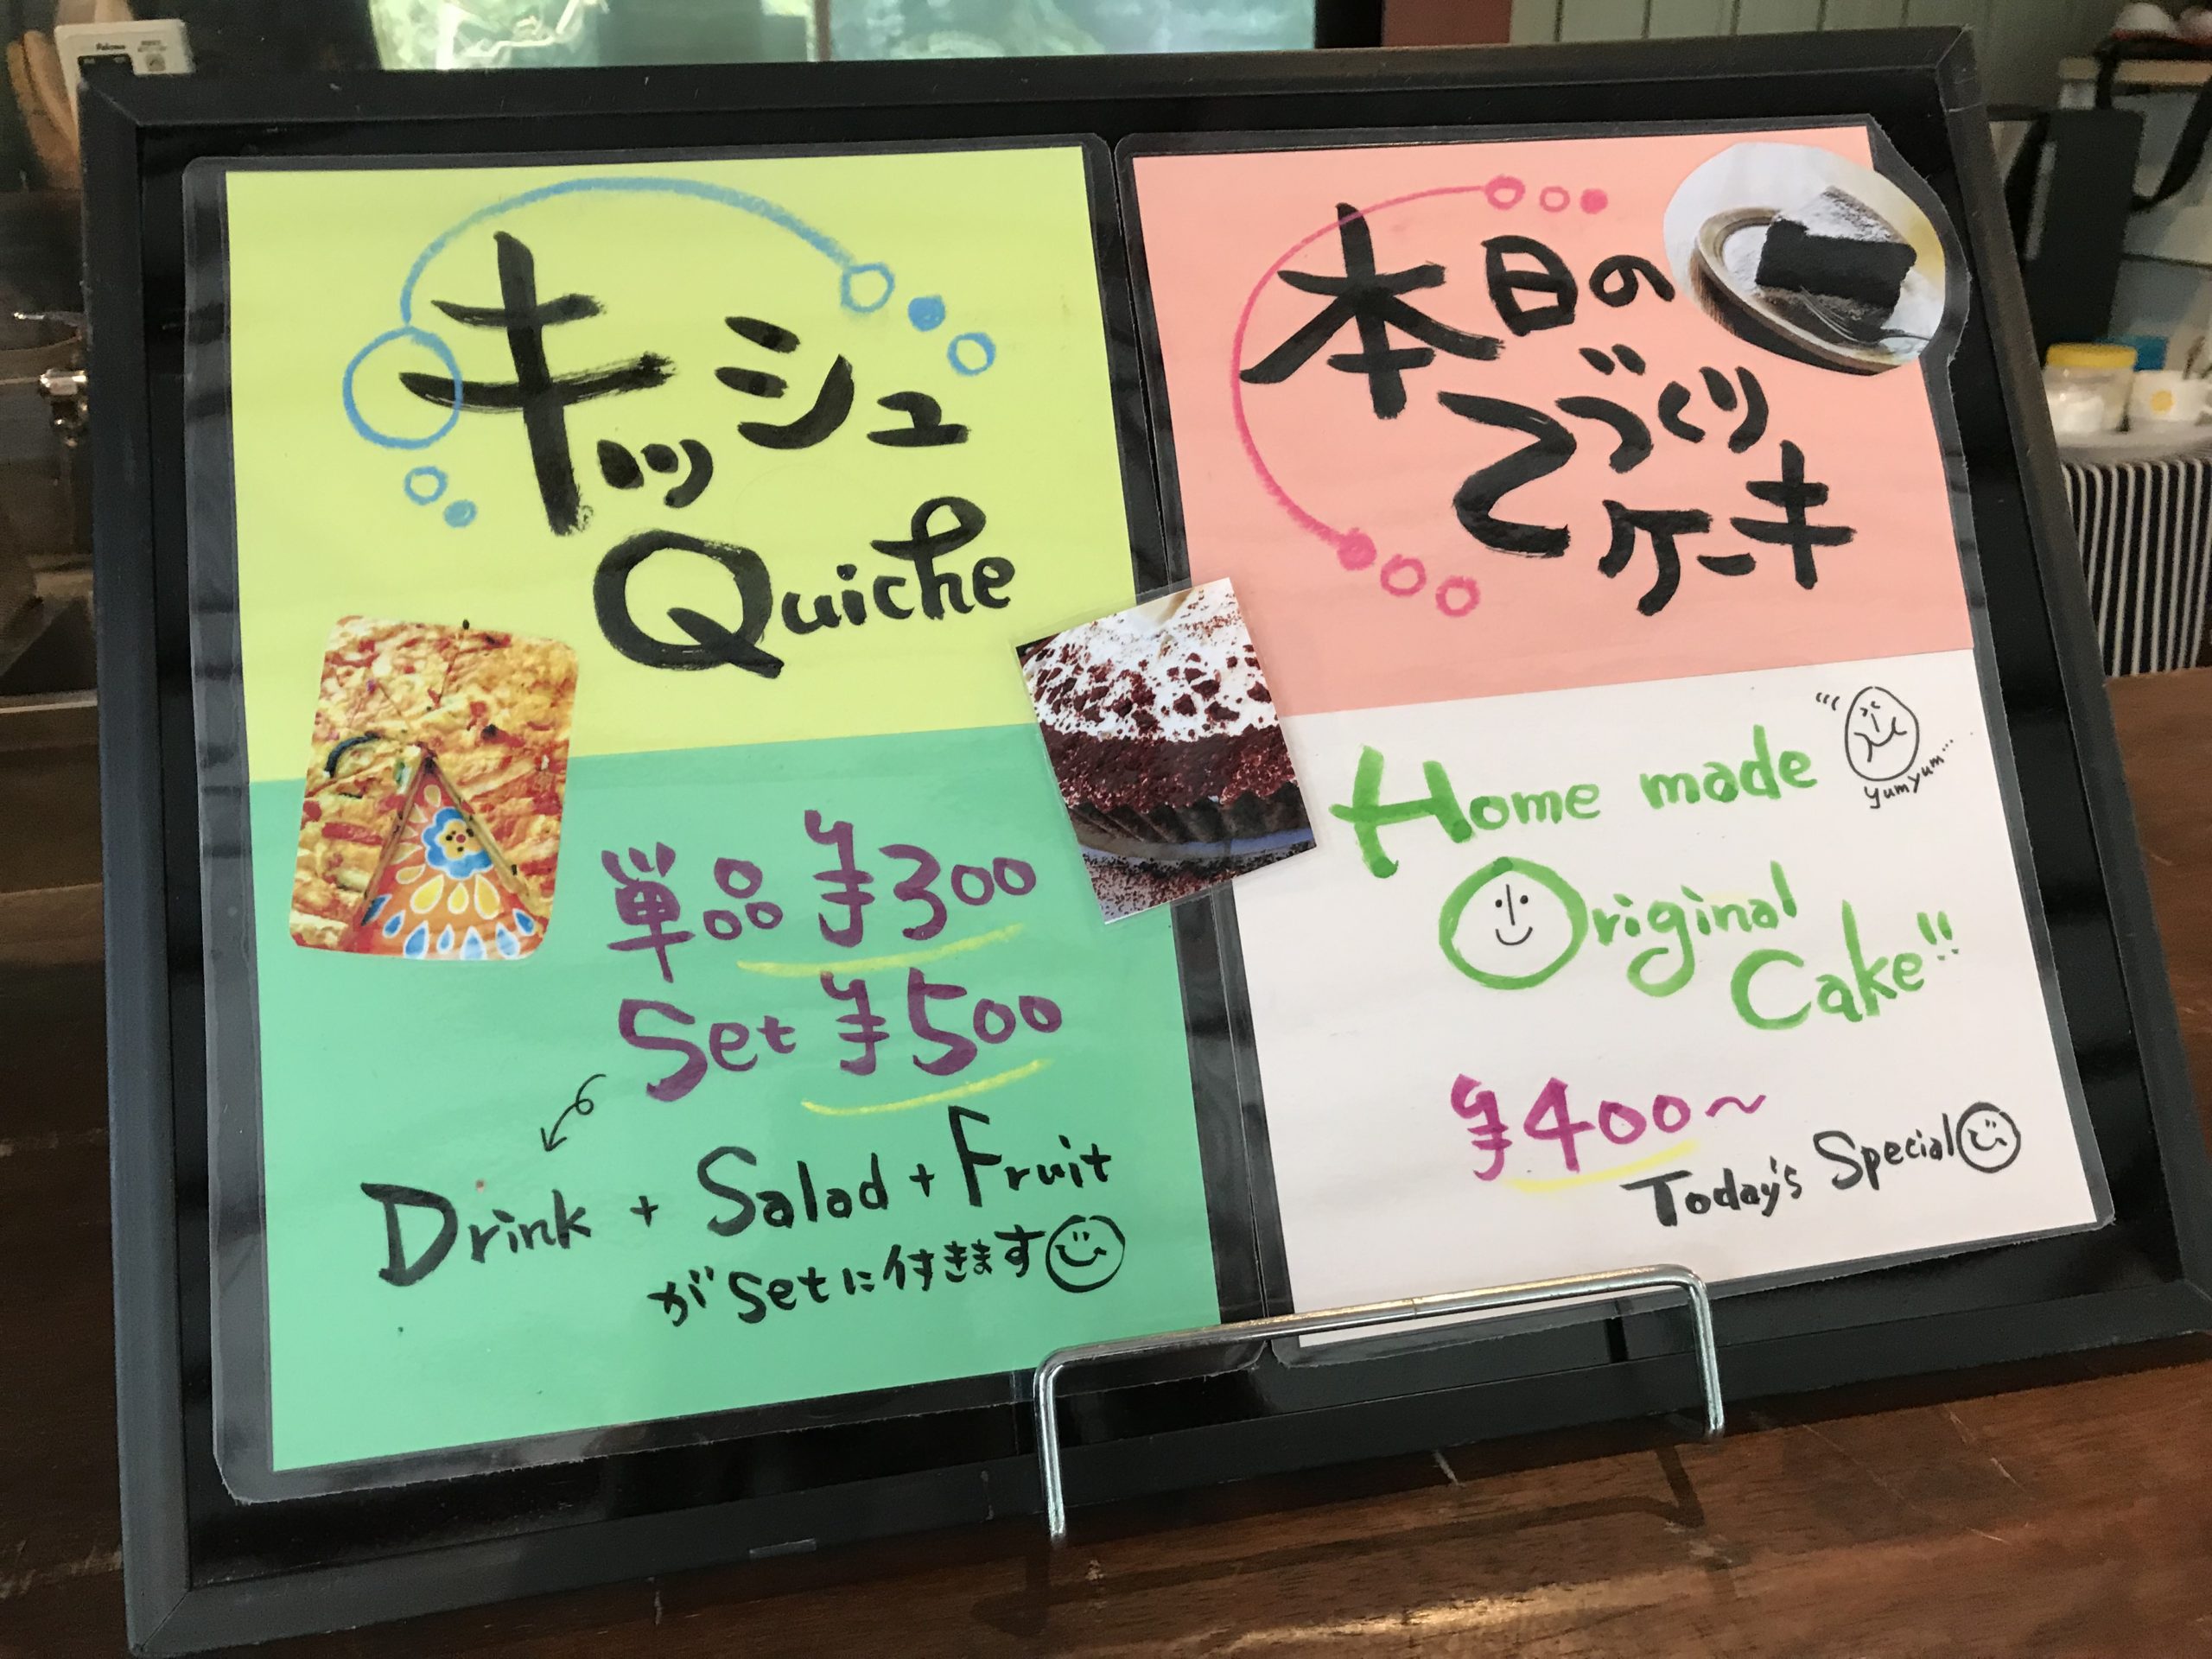 キッシュ
Quiche
単品 ¥300
Set ¥500
Drink + Salad + Fruit
がSetに付きます
本日の
てづくり
ケーキ
Home made
yumyum...
Original
Cake!!
¥400〜
Today's Special
Paloma